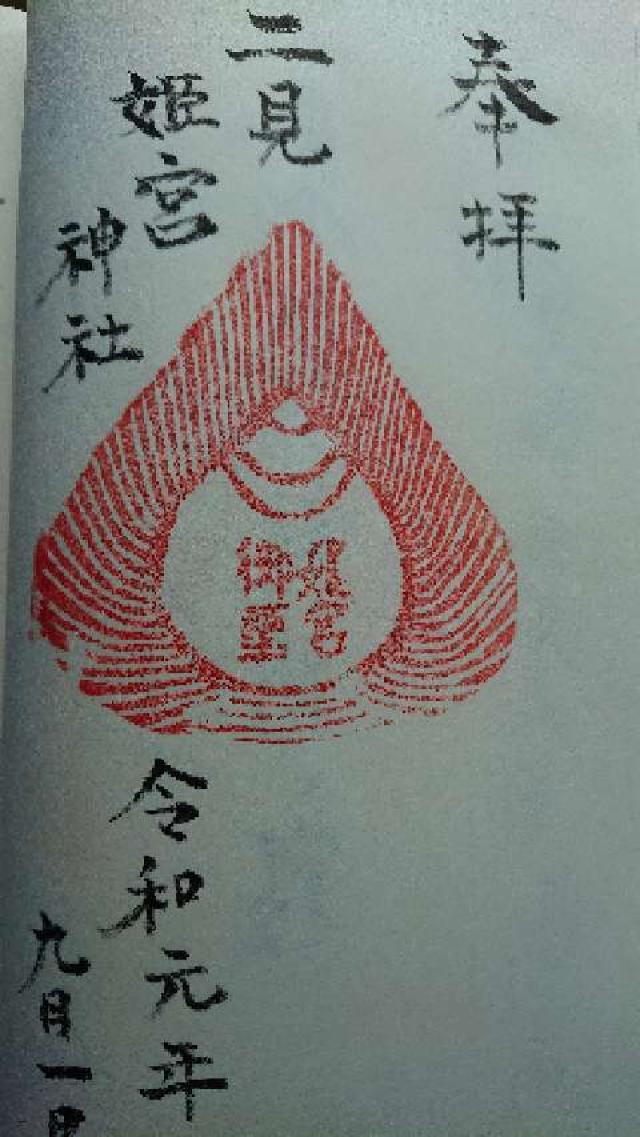 奉拝
二見
姫宮
神社
姫宮
御璽
令和元年
九月一日